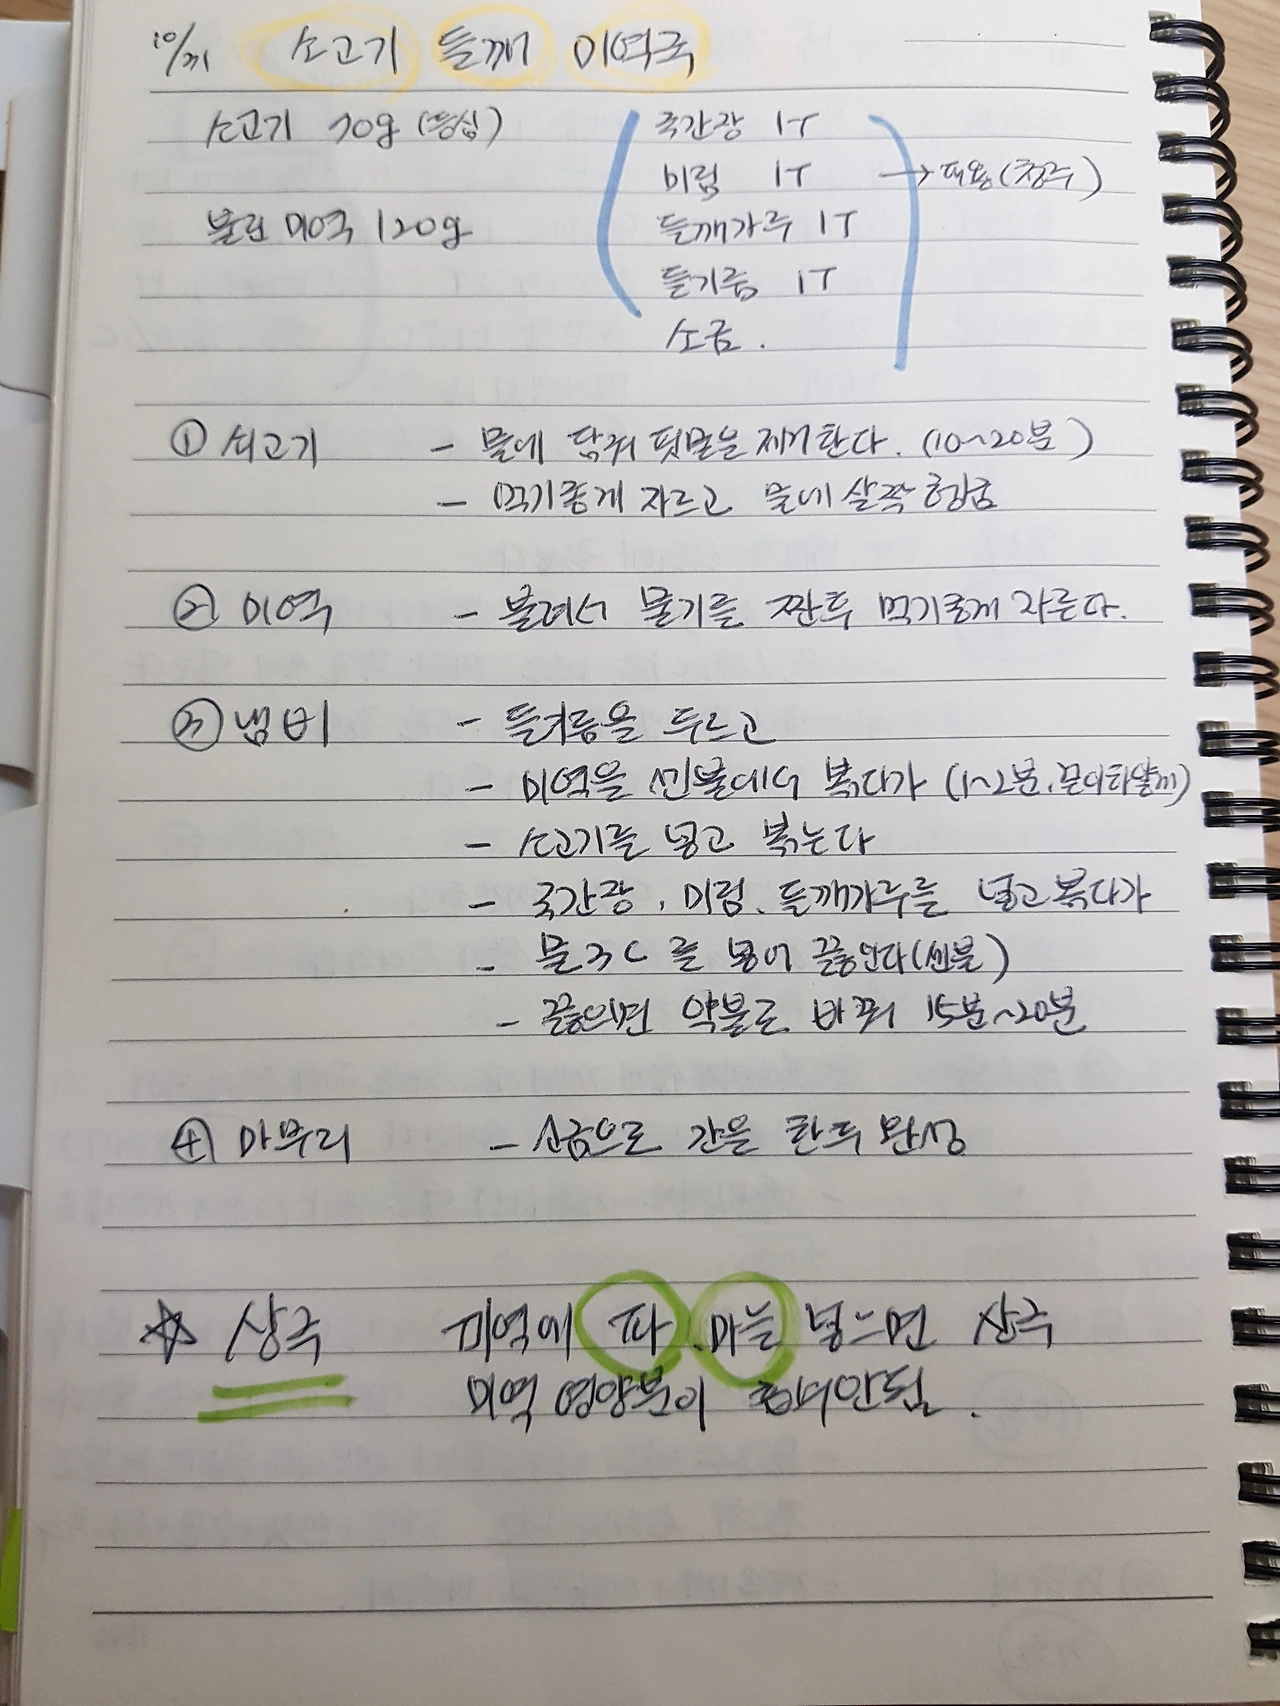 10/31 소고기 들깨 미역국
소고기 70g (등심)
불린 미역 120g
국간장 1T
미림 1T → 대용(청주)
들깨가루 1T
들기름 1T
소금.
① 쇠고기 - 물에 담궈 핏물을 제거한다. (10~20분)
- 먹기좋게 자르고 물에 살짝 헹굼
② 미역 - 불려서 물기를 짠후 먹기좋게 자른다.
③ 냄비 - 들기름을 두르고
- 미역을 센불에서 볶다가 (1~2분.
- 소고기를 넣고 볶는다
- 국간장, 미림, 들깨가루를 넣고 볶다가
- 물 3C 를 넣어 끓인다 (센불)
- 끓으면 약불로 바꿔 15분~20분
④ 마무리 - 소금으로 간을 한후 완성
☆ 상극 미역에 파, 마늘 넣으면 상극
미역 영양분이 흡수안됨.